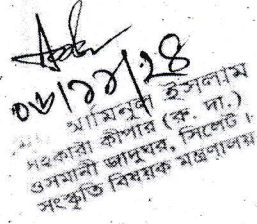 ০৬/১১/২৪
আমিনুল ইসলাম
সহকারী কীপার (ক. দা.)
ওসমানী জাদুঘর, সিলেট।
সংস্কৃতি বিষয়ক মন্ত্রণালয়